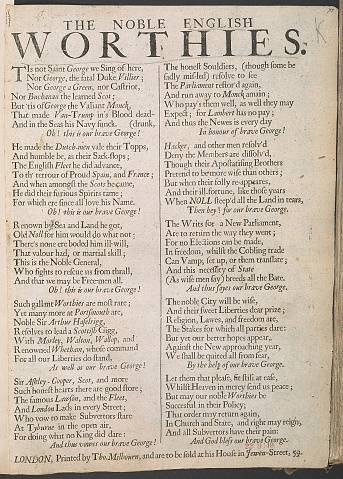 THE NOBLE ENGLISH
WORTHIES.
TIs not Saint George we Sing of here,
Nor George, the fatal Duke Villier;
Nor George a Green, nor Castriot,
Nor Buchanan the learned Scot;
But 'tis of George the Valiant Monck,
That made Van-Trump in's Blood dead-
And in the Seas his Navy sunck. (drunk,
Oh! this is our brave George!
He made the Dutch-men vale their Topps,
And humble be, as their Sack-slops;
The English Fleet he did advance,
To th' terrour of Proud Spain, and France;
And when amongst the Scots he came,
He did their furious Spirits tame;
For which ere since all love his Name.
Oh! this is our brave George!
Renown by Sea and Land he got,
Old Noll for him would do what not;
There's none ere boded him ill-will,
That valour had, or martial skill;
This is the Noble General,
Who fights to rescue us from thrall,
And that we may be Free-men all.
Oh! this is our brave George!
Such gallant Worthies are most rare;
Yet many more at Portsmouth are,
Noble Sir Arthur Haselrigg,
Resolves to lead a Scotish Gigg,
With Morley, Walton, Wallop, and
Renowned Whetham, whose command
For all our Liberties do stand,
As well as our brave George!
Sir Ashley-Cooper, Scot, and more
Such honest hearts there are good store;
The famous Lawson, and the Fleet,
And London Lads in every Street;
Who vow to make Subverters stare
At Tyburne in the open air,
For doing what no King did dare:
And thus vowes our brave George!
The honest Souldiers, (though some be
sadly mis-led) resolve to see
The Parliament restor'd again,
And run away to Monck amain;
Who pay's them well, as well they may
Expect; for Lambert has no pay;
And thus the Newes is every day
In honour of brave George!
Hacker, and other men resolv'd
Deny the Members are dissolv'd,
Though their Apostatising Brothers
Pretend to be more wise than others;
But when their folly re-appeares,
And their ill-fortune, like those years
When NOLL steep'd all the Land in tears,
Then hey! for our brave George.
The Writs for a New Parliament,
Are to return the way they went;
For no Elections can be made,
In freedom, whilst the Cobling trade
Can Vamp, set up, or them translate;
And this necessity of State
(As wise men say) breeds all the Bate.
And thus sayes our brave George.
The noble City will be wise,
And their sweet Liberties dear prize;
Religion, Lawes, and freedom are,
The Stakes for which all parties dare:
But yet our better hopes appear,
Against the New approaching year,
We shall be quitted all from fear,
By the help of our brave George.
Let them that please, sit still at ease,
Whilst Heaven in mercy send us peace;
But may our noble Worthies be
Successful in their Policy;
That order may return again,
In Church and State, and right may reign,
And all Subvertors have their pain:
And God bless our brave George.
LONDON, Printed by Tho. Milbourn, and are to be sold at his House in Jewen-Street, 59.